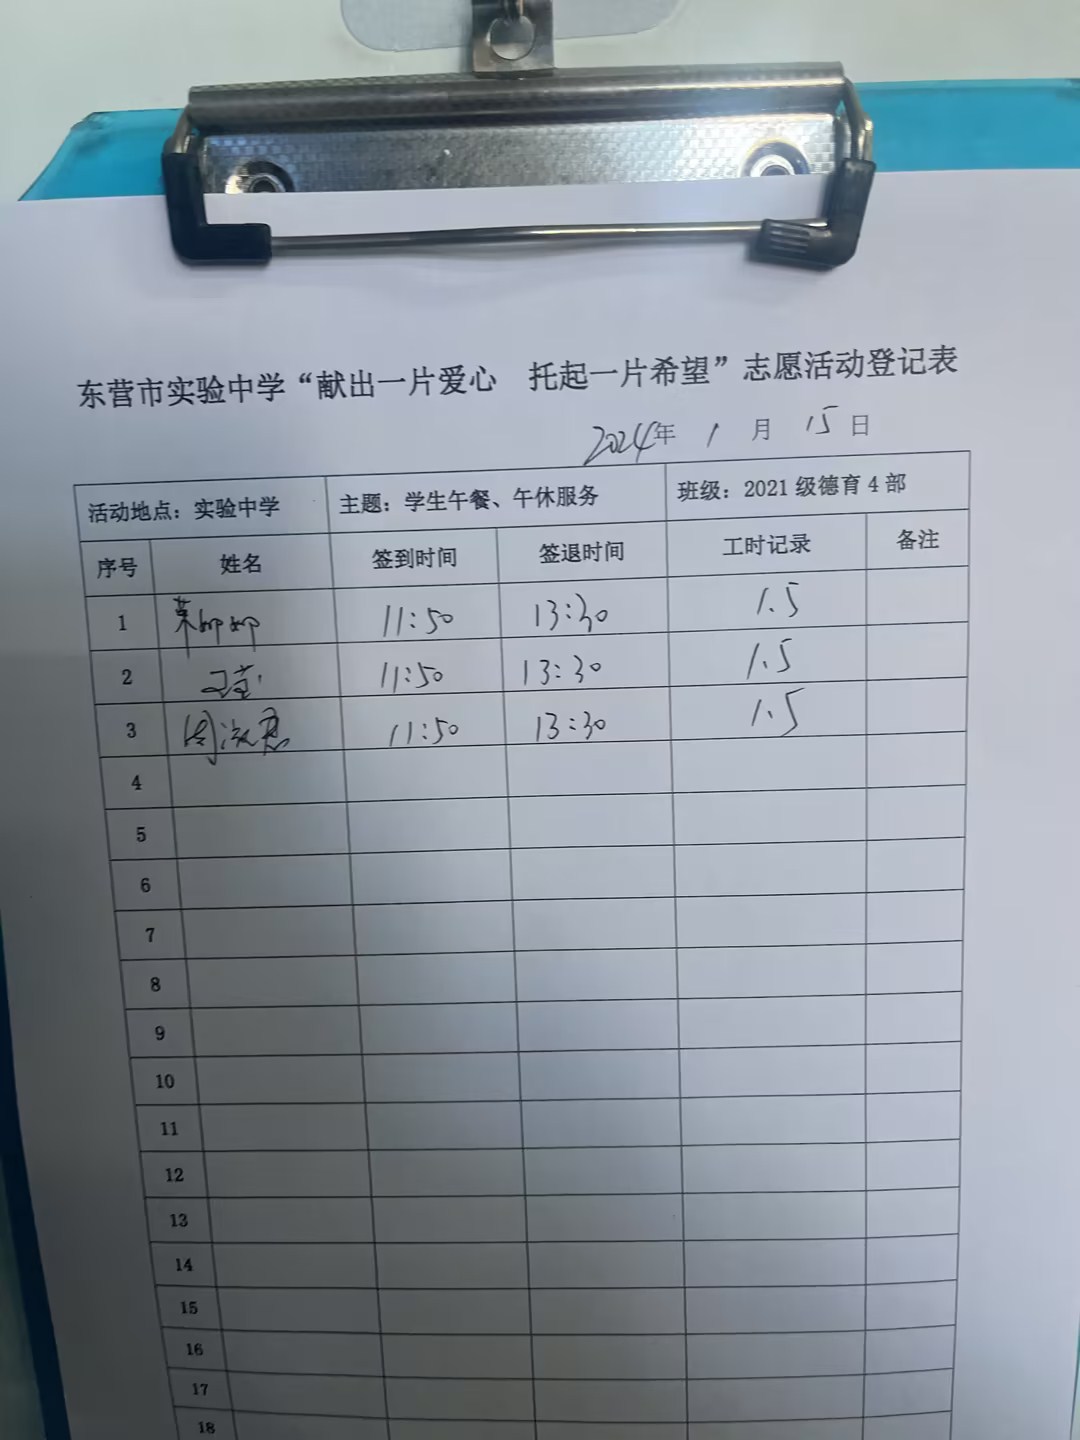 东营市实验中学“献出一片爱心 托起一片希望”志愿活动登记表
2024年 1 月 15 日
活动地点：实验中学 主题：学生午餐、午休服务 班级：2021级德育4部
序号 姓名 签到时间 签退时间 工时记录 备注
1 11:50 13:30 1.5
2 11:50 13:30 1.5
3 周 11:50 13:30 1.5
4
5
6
7
8
9
10
11
12
13
14
15
16
17
18